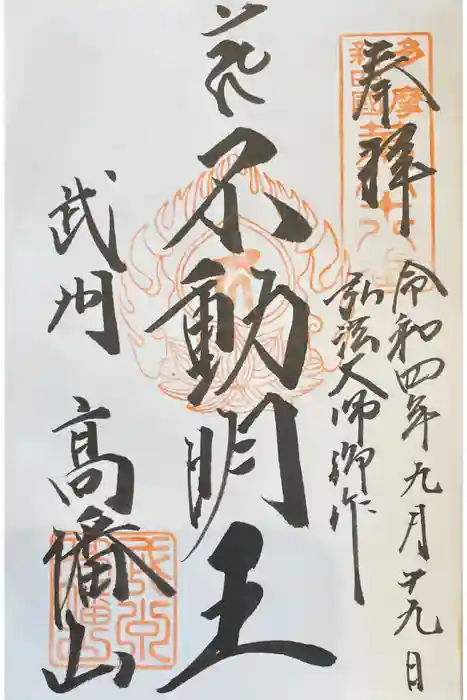 奉拝
令和四年九月十九日
弘法大師御作
花不動明王
武州 高幡山